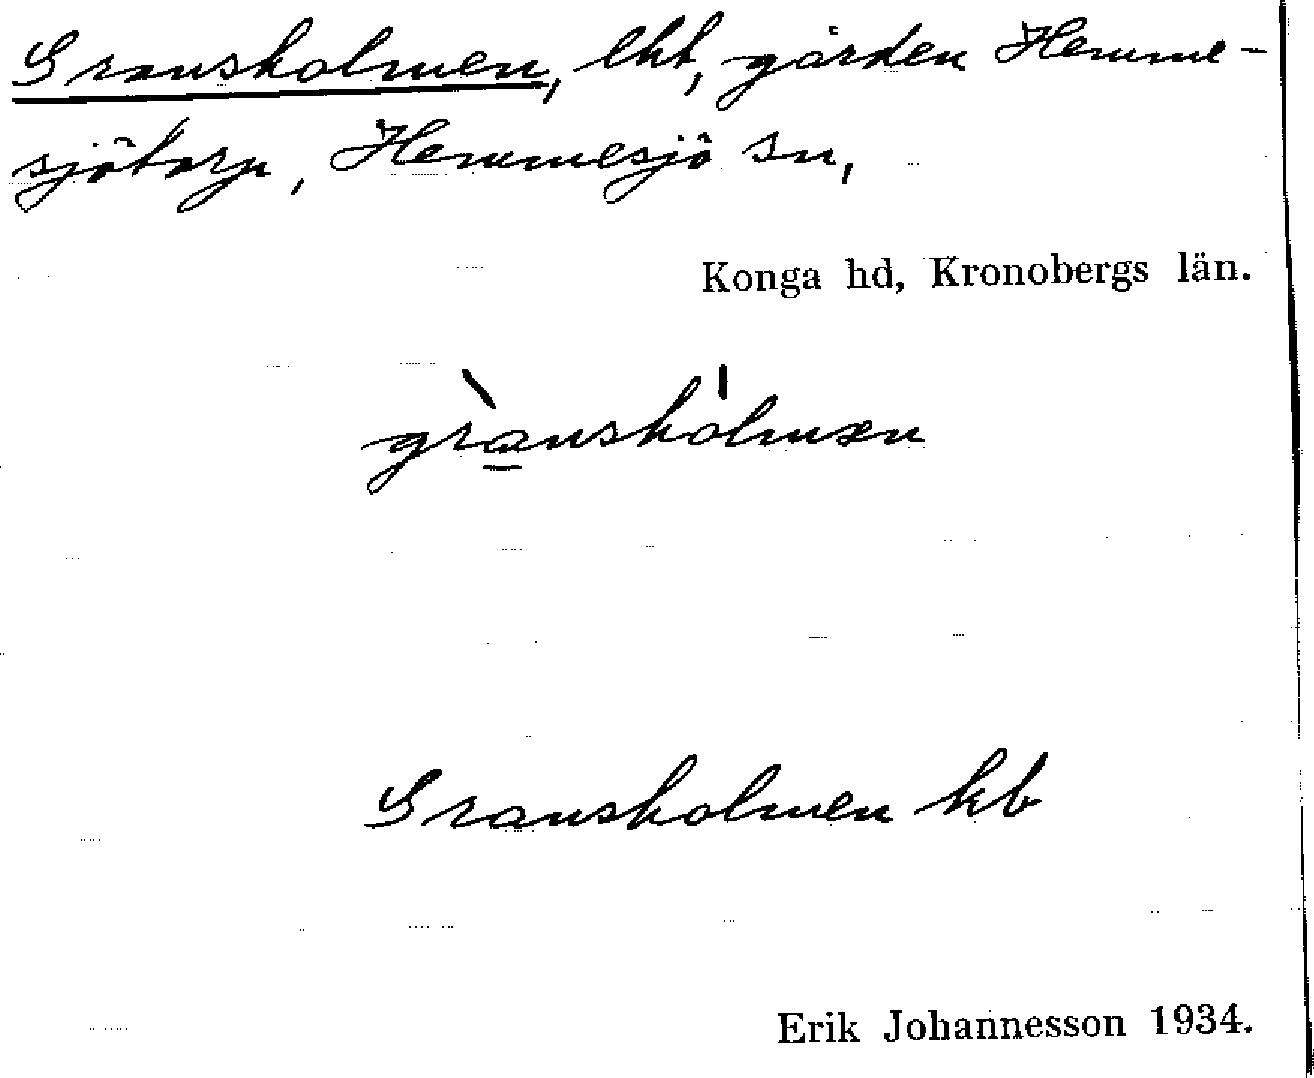 Gransholmen, lht, gården Hemme-
sjötorp, Hemmesjö sn,
Konga hd, Kronobergs län.
grànshålmæn
Gransholmen kb
Erik Johannesson 1934.